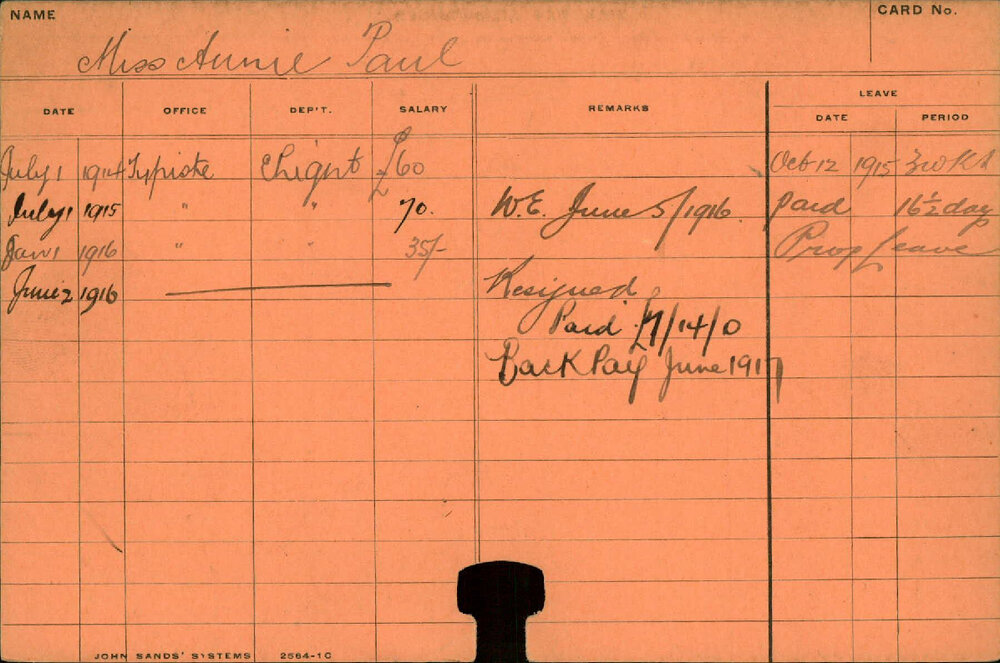 NAME
CARD No.
Miss Annie Paul
DATE OFFICE DEP'T. SALARY REMARKS LEAVE
DATE PERIOD
July 1 1914 Typiste £60 Oct 12 1915 3 wks
July 1 1915 " " 70. W.E. June 5/1916. Paid 16½ day
Jan 1 1916 " " 35/- Prop Leave
June 2 1916 Resigned
Paid £7/14/0
Back Pay June 1917
JOHN SANDS' SYSTEMS 2564-1C